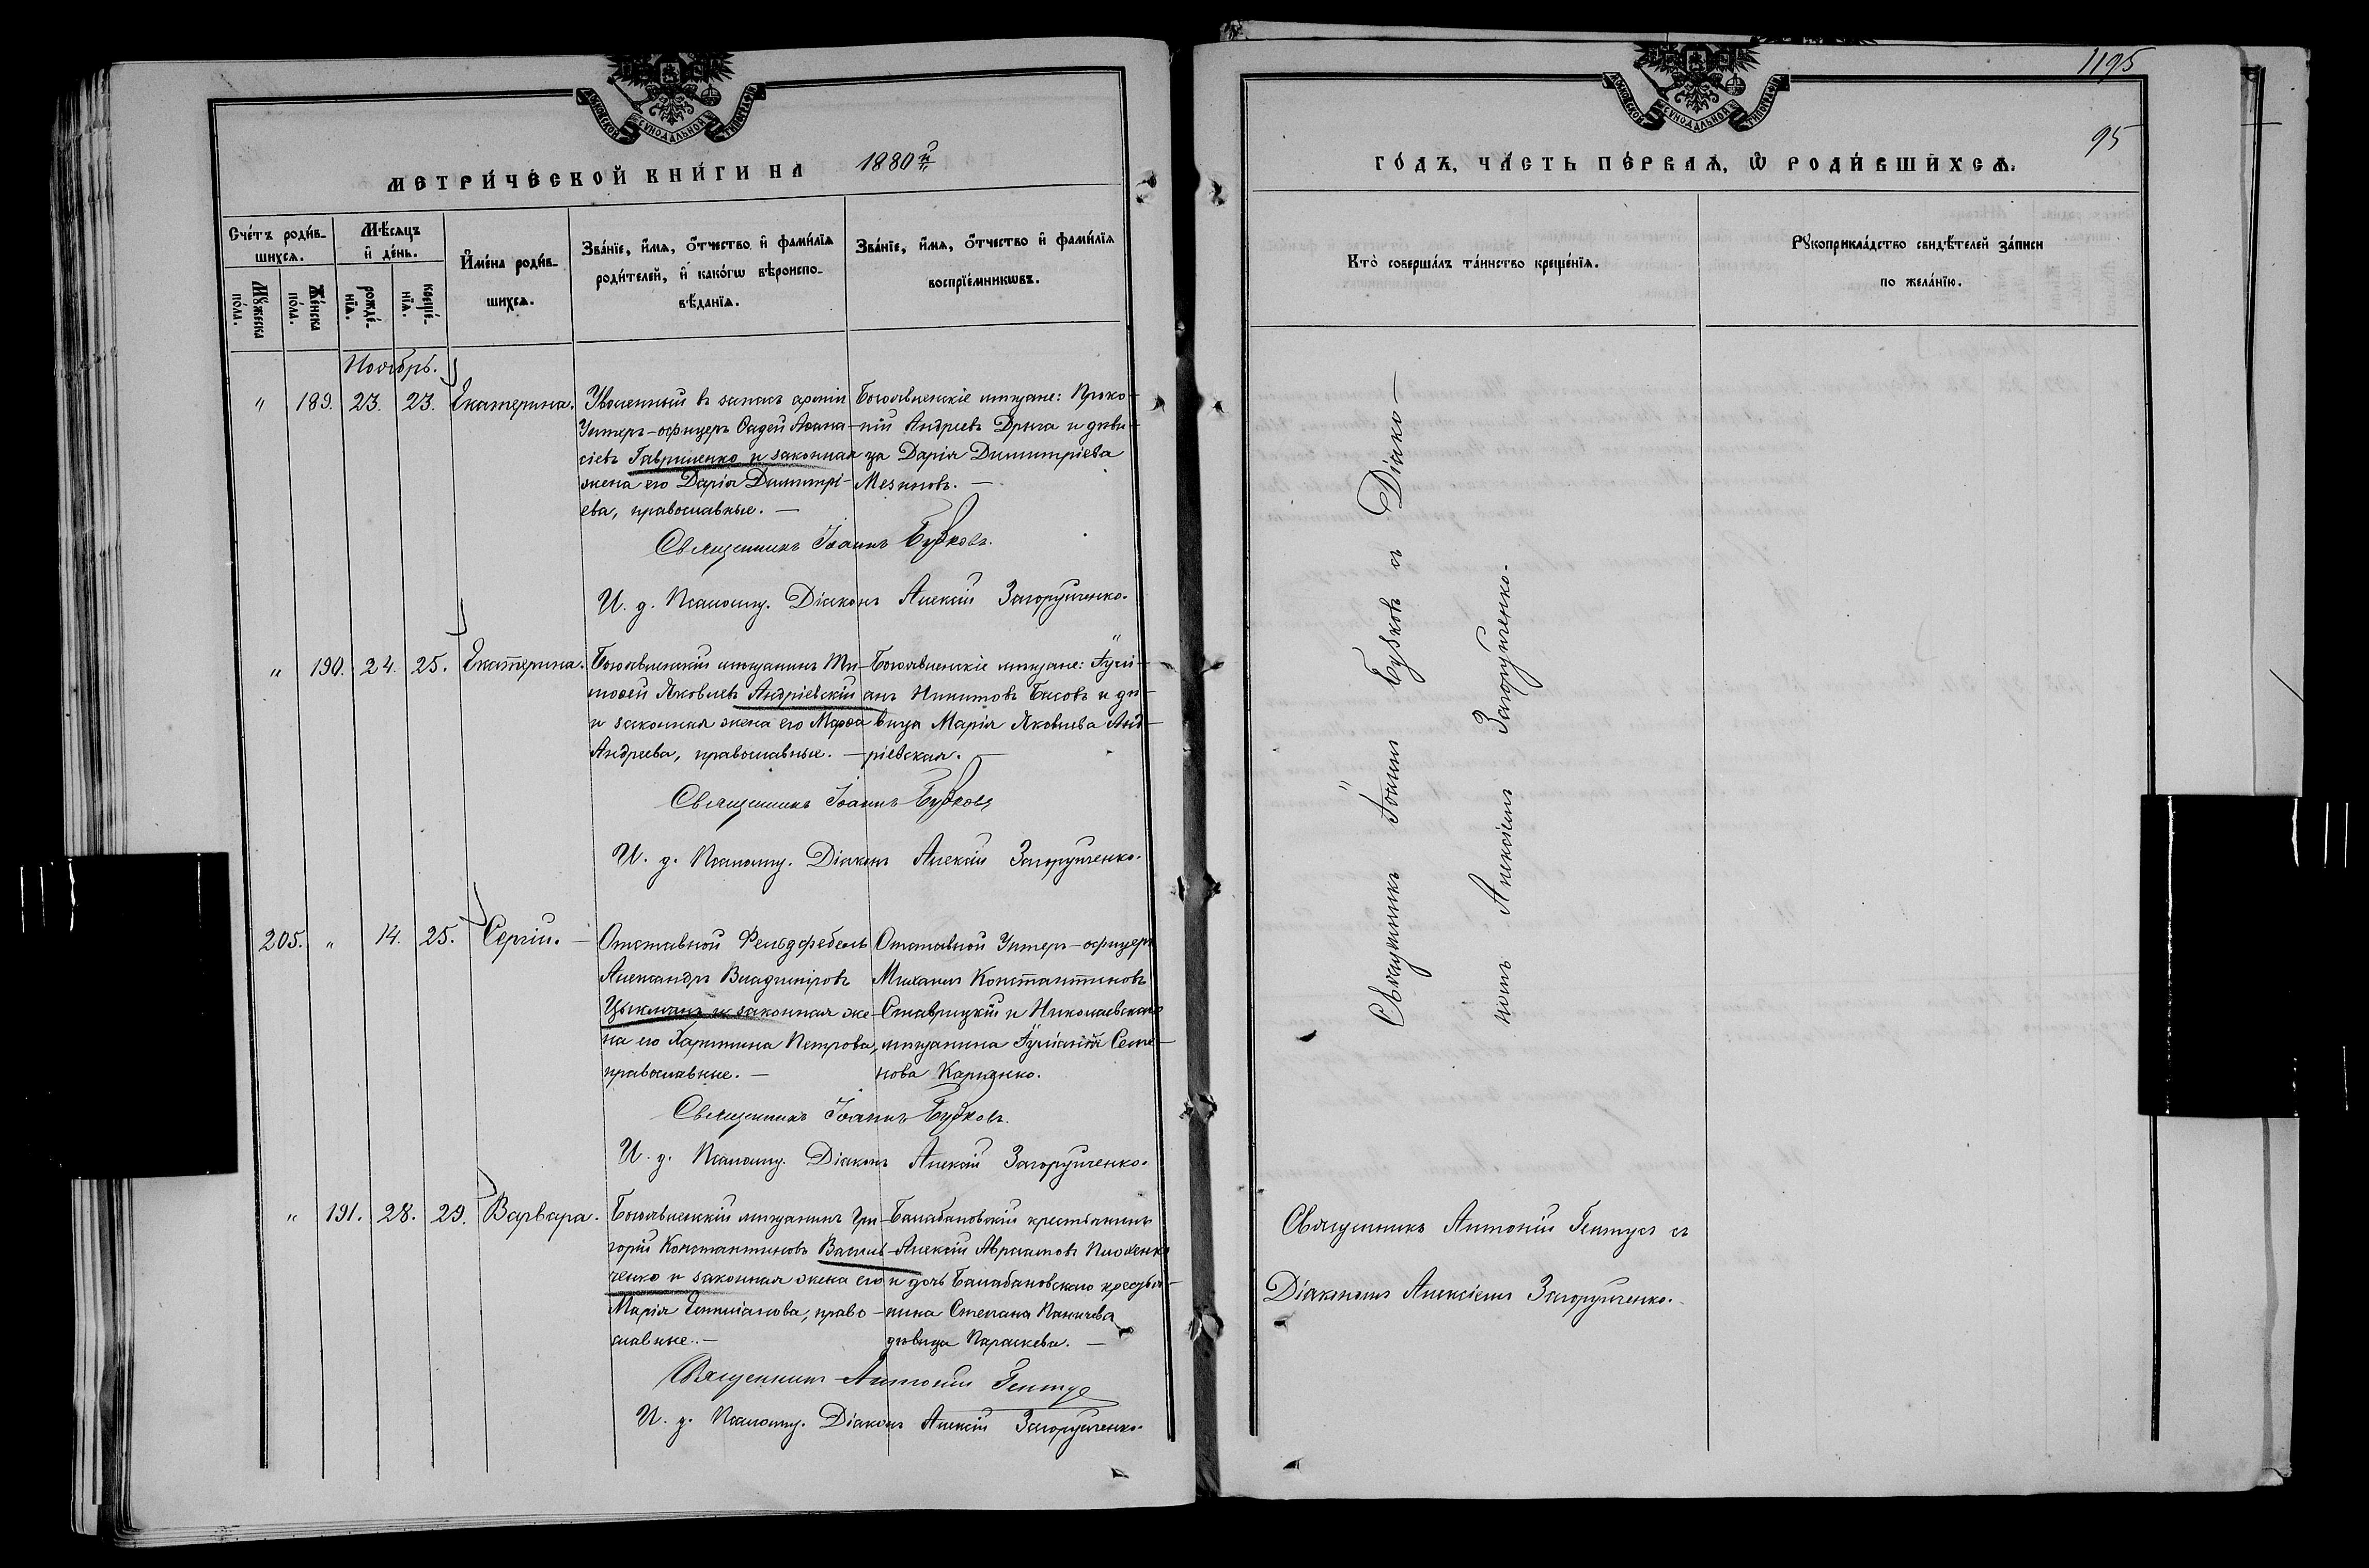 МОСКОВСКОЙ СѴНОДАЛЬНОЙ ТИПОГРАФІИ
МЕТРИ́ЧЕСКОЙ КНИ́ГИ НА 1880й
Сче́тъ роди́в-
шихсѧ.
Мꙋ́жеска
по́ла.
Же́нска
по́ла.
Мѣ́сѧцъ
и҆ де́нь.
рожде́-
нїѧ.
креще́-
нїѧ.
И҆мена̀ роди́в-
шихсѧ.
Зва́нїе, и҆́мѧ, ѻ҆́тчество и҆ фами́лїѧ
роди́телей, и҆ како́гѡ вѣроиспо-
вѣ́данїѧ.
Зва́нїе, и҆́мѧ, ѻ҆́тчество и҆ фами́лїѧ
воспрїе́мникѡвъ.
Ноябрь.
" 189. 23. 23. Екатерина.
Уволенный въ запасъ арміи
Унтеръ-офицеръ Фадей Аѳана-
сіевъ Гавриленко и законная
жена его Дарія Димитрі-
ева, православные. —
Богоявленскіе мѣщане: Проко-
пій Андреевъ Дрыга и дѣви-
ца Дарія Димитріева
—
Священникъ Іоаннъ Будковъ.
И. д. Псаломщ. Діаконъ Алексій Загорулченко.
" 190. 24. 25. Екатерина.
Богоявленскій мѣщанинъ Ти-
моѳей Яковлевъ Андріевскій
и законная жена его Марѳа
Андреева, православные. —
Богоявленскіе мѣщане: Іулі-
анъ Никитовъ Басовъ и дѣ-
вица Марія Яковлева Анд-
ріевская. —
Священникъ Іоаннъ Будковъ
И. д. Псаломщ. Діаконъ Алексій Загорулченко.
205. " 14. 25. Сергій. —
Отставной Фельдфебель
Александръ Владиміровъ
и законная же-
на его Харитина Петрова,
православные. —
Отставной Унтеръ-офицеръ
Михаилъ Константиновъ
Ставрицкій и Николаевская
мѣщанина Іуліанія Семе-
нова Карпенко.
Священникъ Іоаннъ Будковъ.
И. д. Псаломщ. Діаконъ Алексій Загорулченко.
" 191. 28. 29. Варвара.
Богоявленскій мѣщанинъ Гри-
горій Константиновъ Василь-
ченко и законная жена его
Марія Емиліанова, право-
славные. —
Балабановскій крестьянинъ
Алексій Авраамовъ
и дочь Балабановскаго крестья-
нина Стефана Паничева
дѣвица Параскева. —
Священникъ Антоній
И. д. Псаломщ. Діаконъ Алексій Загорулченко.
1195
95
МОСКОВСКОЙ СѴНОДАЛЬНОЙ ТИПОГРАФІИ
ГО́ДЪ, ЧА́СТЬ ПЕ́РВАѦ, Ѡ҆ РОДИ́ВШИХСѦ.
Кто̀ соверша́лъ та́инство креще́нїѧ.
Рꙋкоприкла́дство свидѣ́телей за́писи
по жела́нїю.
Священникъ Іоаннъ Будковъ съ Діако-
номъ Алексіемъ Загорулченко.
Священникъ Антоній съ
Діакономъ Алексіемъ Загорулченко.